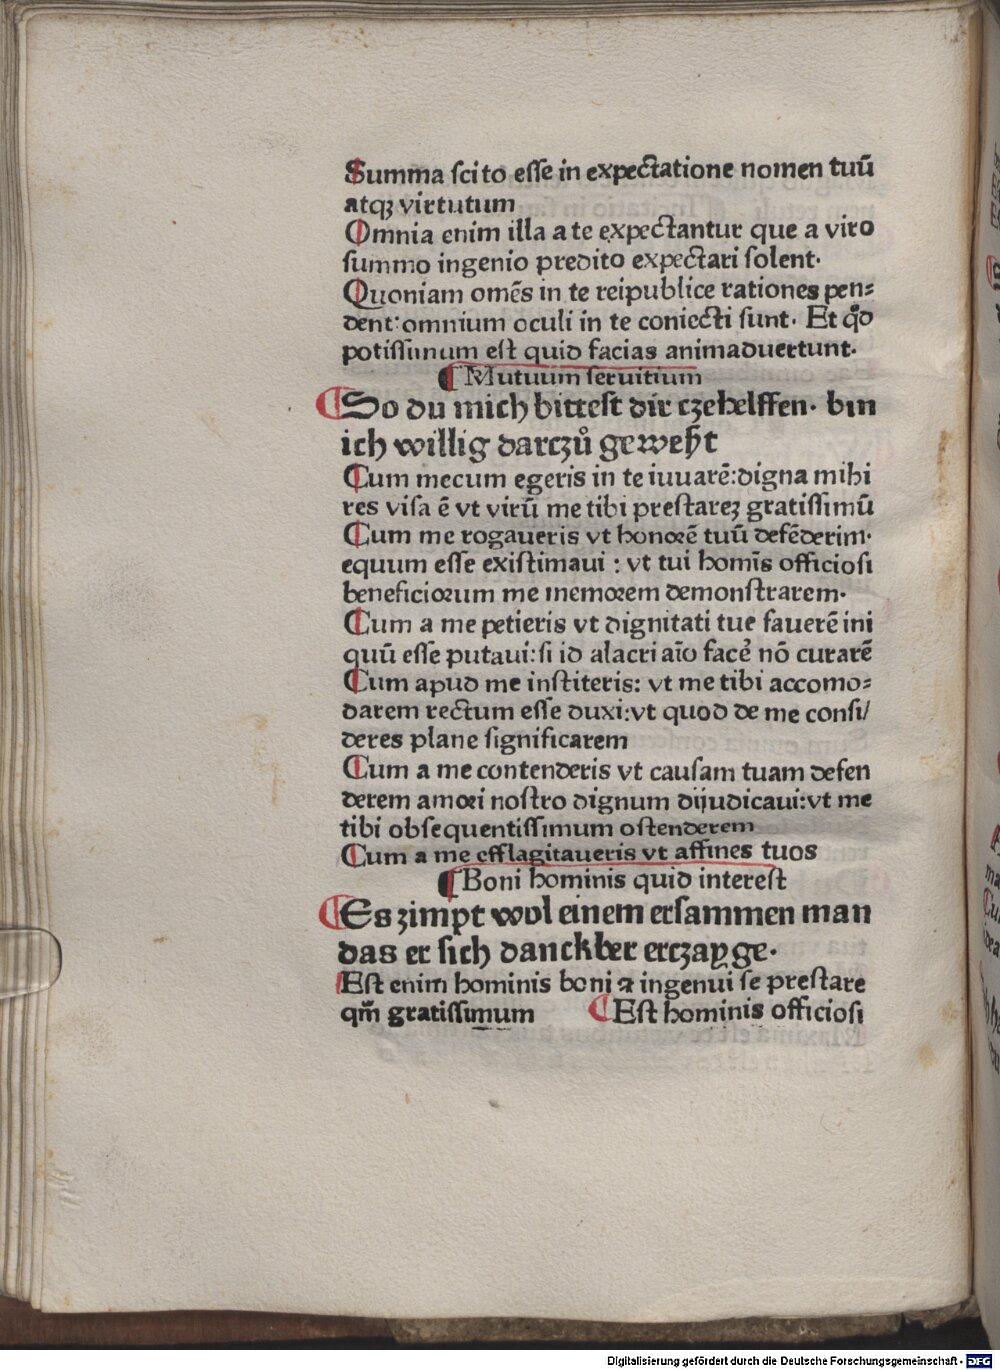 Summa scito esse in expectatione nomen tuū
atqꝫ virtutum
Omnia enim illa a te expectantur que a viro
summo ingenio predito expectari solent·
Quoniam omēs in te reipublice rationes pen⸗
dent:omnium oculi in te coniecti sunt· Et qd̄
potissimum est quid facias animaduertunt·
¶ Mutuum seruitium
¶ So du mich bittest dir czehelffen· bin
ich willig darczů geweßt
Cum mecum egeris in te iuuarē:digna mihi
res visa ē vt virū me tibi prestareꝫ gratissimū
Cum me rogaueris vt honorē tuū defēderim·
equum esse existimaui : vt tui homīs officiosi
beneficiorum me memorem demonstrarem·
Cum a me petieris vt dignitati tue fauerē ini
quū esse putaui:si id alacri aīo facē nō curarē
Cum apud me institeris: vt me tibi accomo⸗
darem rectum esse duxi:vt quod de me consi/
deres plane significarem
Cum a me contenderis vt causam tuam defen
derem amori nostro dignum dijudicaui:vt me
tibi obsequentissimum ostenderem
Cum a me efflagitaueris vt affines tuos
¶ Boni hominis quid interest
¶ Es zimpt wol einem ersammen man
das er sich danckber erczayge·
Est enim hominis boni ⁊ ingenui se prestare
qm̄ gratissimum ¶ Est hominis officiosi
Digitalisierung gefördert durch die Deutsche Forschungsgemeinschaft - DFG